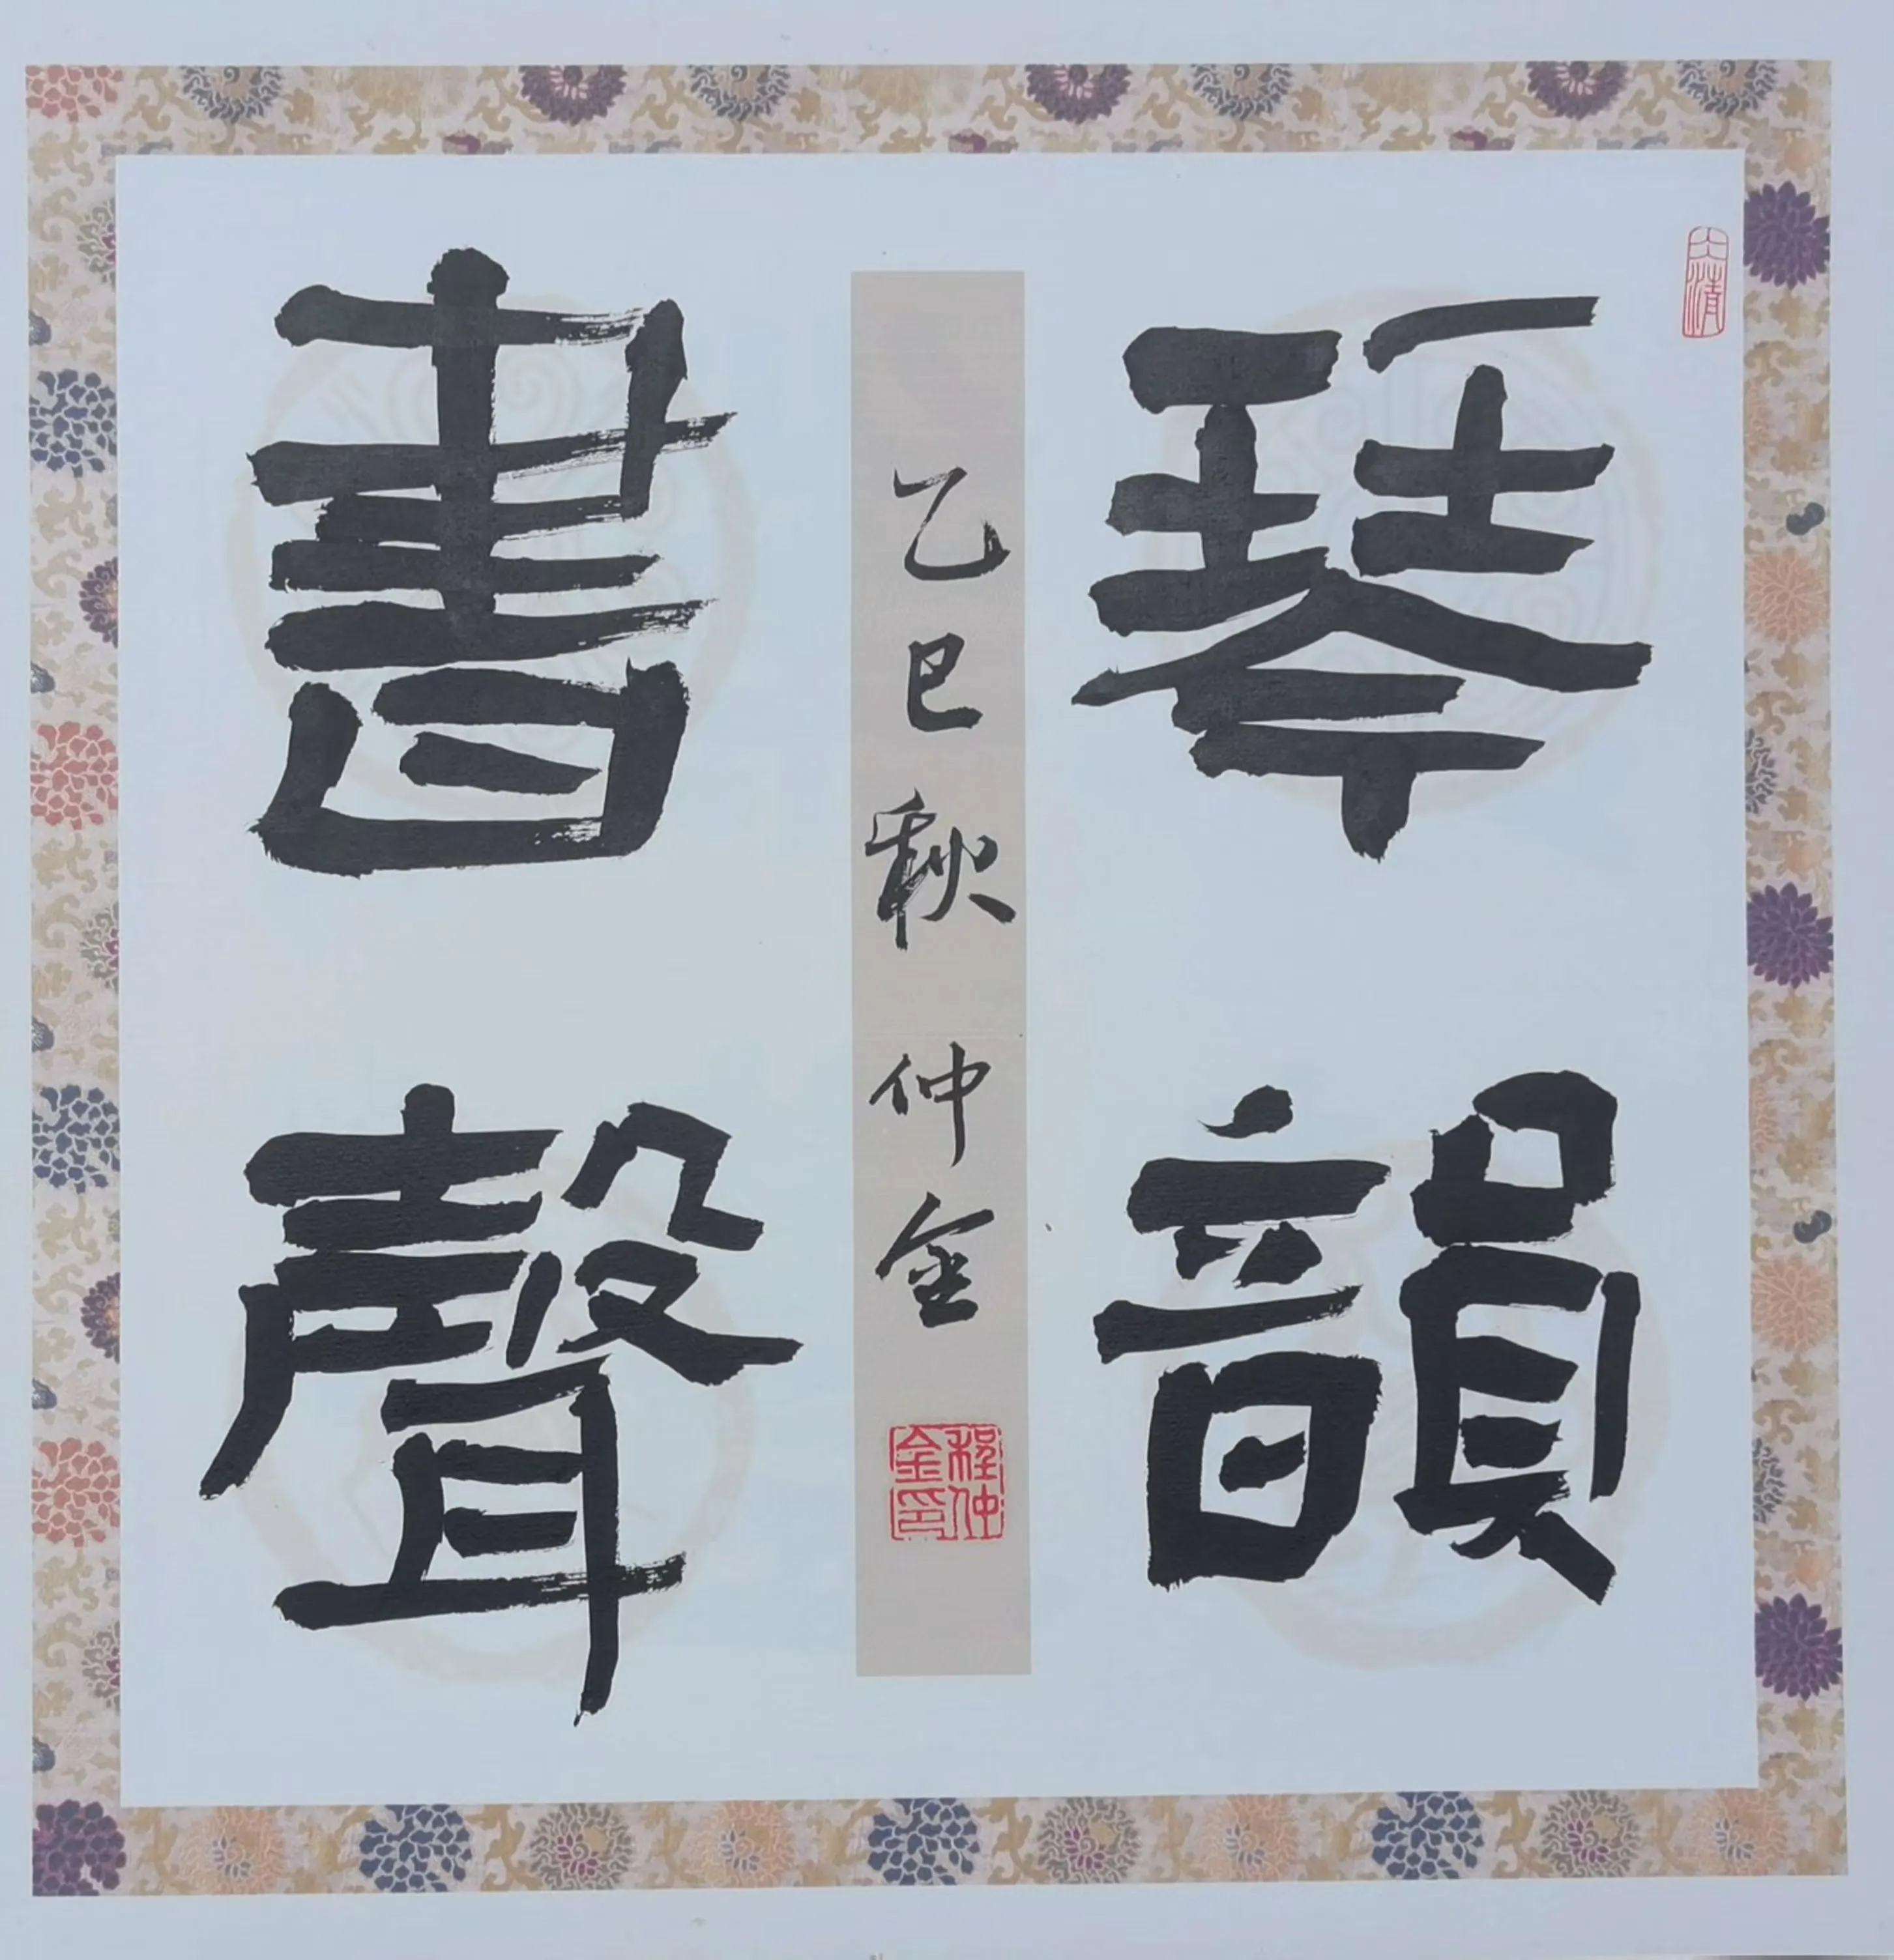 琴韻
書聲
乙巳秋 仲金
程仲金印